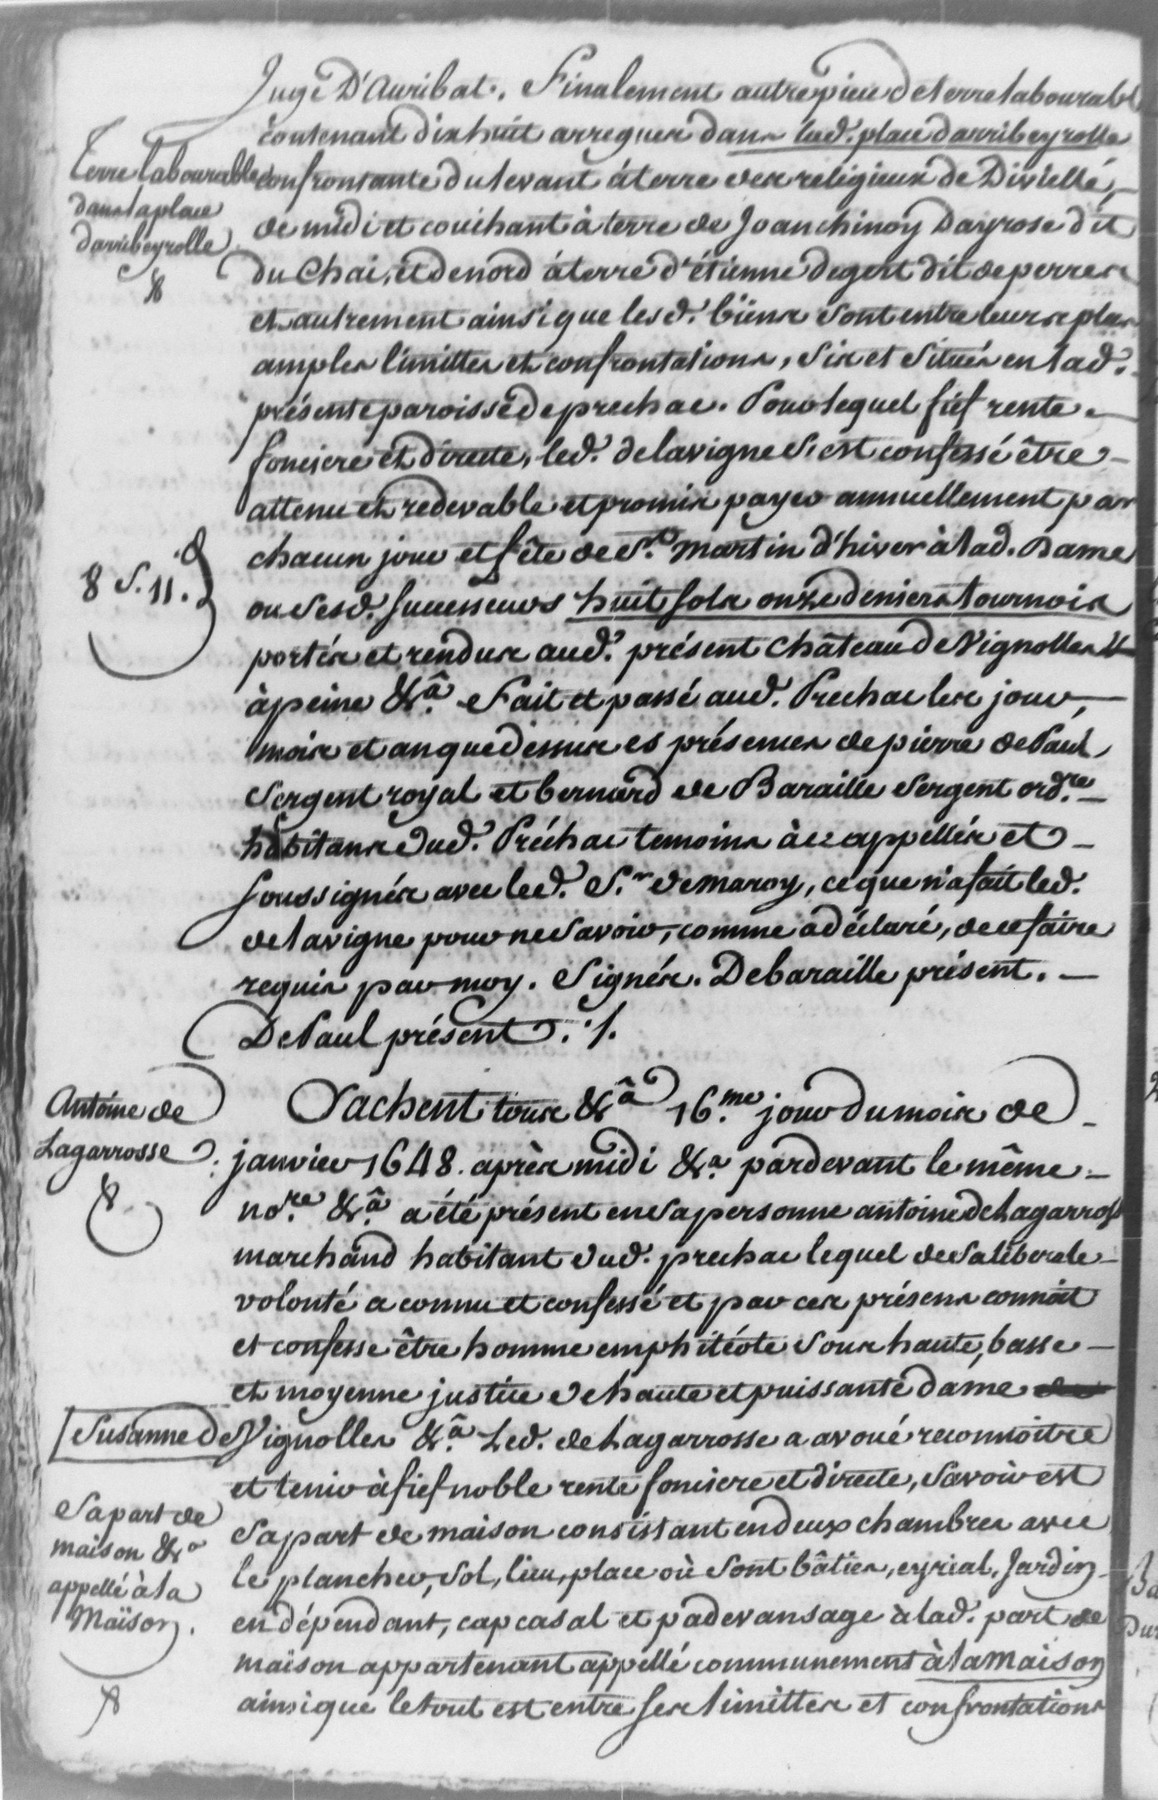 Juge D'Auribat. Finalement autre piece de terre labourable
contenant dix huit arregues dans lad. place darribeyrolle
Terre labourable
dans la place
darribeyrolle
confrontante du levant à terre des religieux de Divielle,
de midi et couchant à terre de Joanchinoy Dayrose dit
du Chai, et de nord à terre d'étienne degert dit de perrer
et autrement ainsi que lesd. biens sont entre leurs plus
amples limittes et confrontations, sis et situés en lad.
présente paroisse de prechac. Pour lequel fief rente
fonciere et directe, led. de lavigne s'est confessé être
attenu et redevable et promis payer annuellement par
chacun jour et fête de St. Martin d'hiver à lad. Dame
8 s. 11. d
ou sesd. successeurs huit sols onze deniers tournois
portés et rendus aud. présent château de Vignolles
à peine &a. Fait et passé aud. Prechac les jour,
mois et an que dessus es présences de pierre de Paul
sergent royal et bernard de Baraille sergent ordre
habitans dud. Préchac temoins à ce appellés et
soussignés avec led. Sr. demaroy, ce que n'a fait led.
de lavigne pour ne savoir, comme a déclaré, de ce faire
requis par moy. Signés. Debaraille présent.
DePaul présent ./.
Antoine de
Lagarrosse
Sachent tous &a 16.me jour du mois de
janvier 1648. après midi &a pardevant le même
nore &a a été présent en sa personne antoine de Lagarrosse
marchand habitant dud. prechac lequel de sa liberale
volonté a connu et confessé et par ces présens connoit
et confesse être homme emphitéote sous haute, basse
et moyenne justice de haute et puissante dame
Susanne de Vignolles &a Led. de Lagarrosse a avoué reconnoitre
et tenir à fief noble rente fonciere et directe, savoir est
Sa part de
maison &a
appellé à la
Maison.
Sa part de maison consistant en deux chambres avec
le plancher, sol, lieu, place où sont bâties, eyrial, Jardin
en dépendant, cap casal et padevansage à lad. part de
maison appartenant appellé communement à la maison
ainsi que le tout est entre ses limittes et confrontations